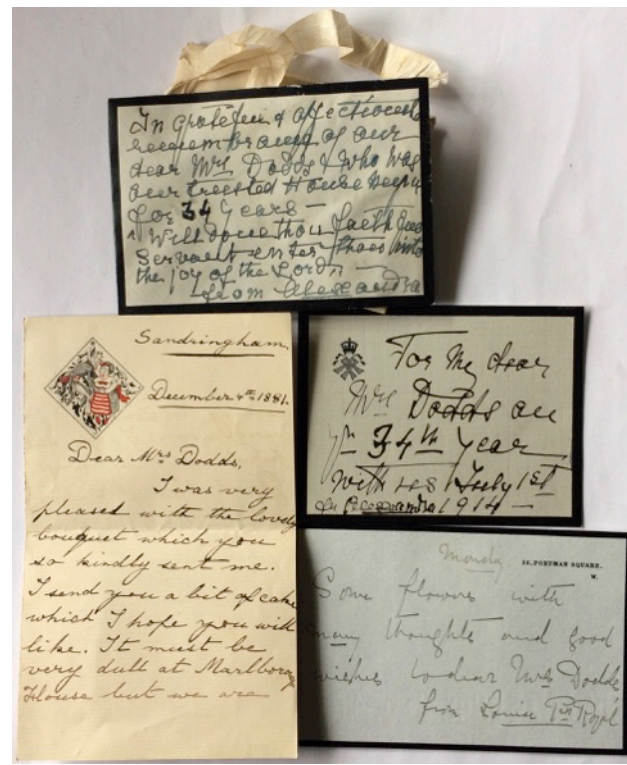 In grateful & affectionate
remembrance of our
dear Mrs Dodds & who was
our trusted House
for 34 years —
Well done thou faithful
Servant enter thou into
the joy of the Lord —
from Alexandra
Sandringham.
December 4th 1881.
Dear Mrs Dodds,
I was very
pleased with the lovely
bouquet which you
so kindly sent me.
I send you a bit of cake
which I hope you will
like. It must be
very dull at Marlboro
House but we are
For My dear
Mrs Dodds on
34th Year
with us July 1st
1914 —
Monday
PORTMAN SQUARE.
W.
Some flowers with
many thoughts and good
wishes to dear Mrs Dodds
from Louise Pss Royal